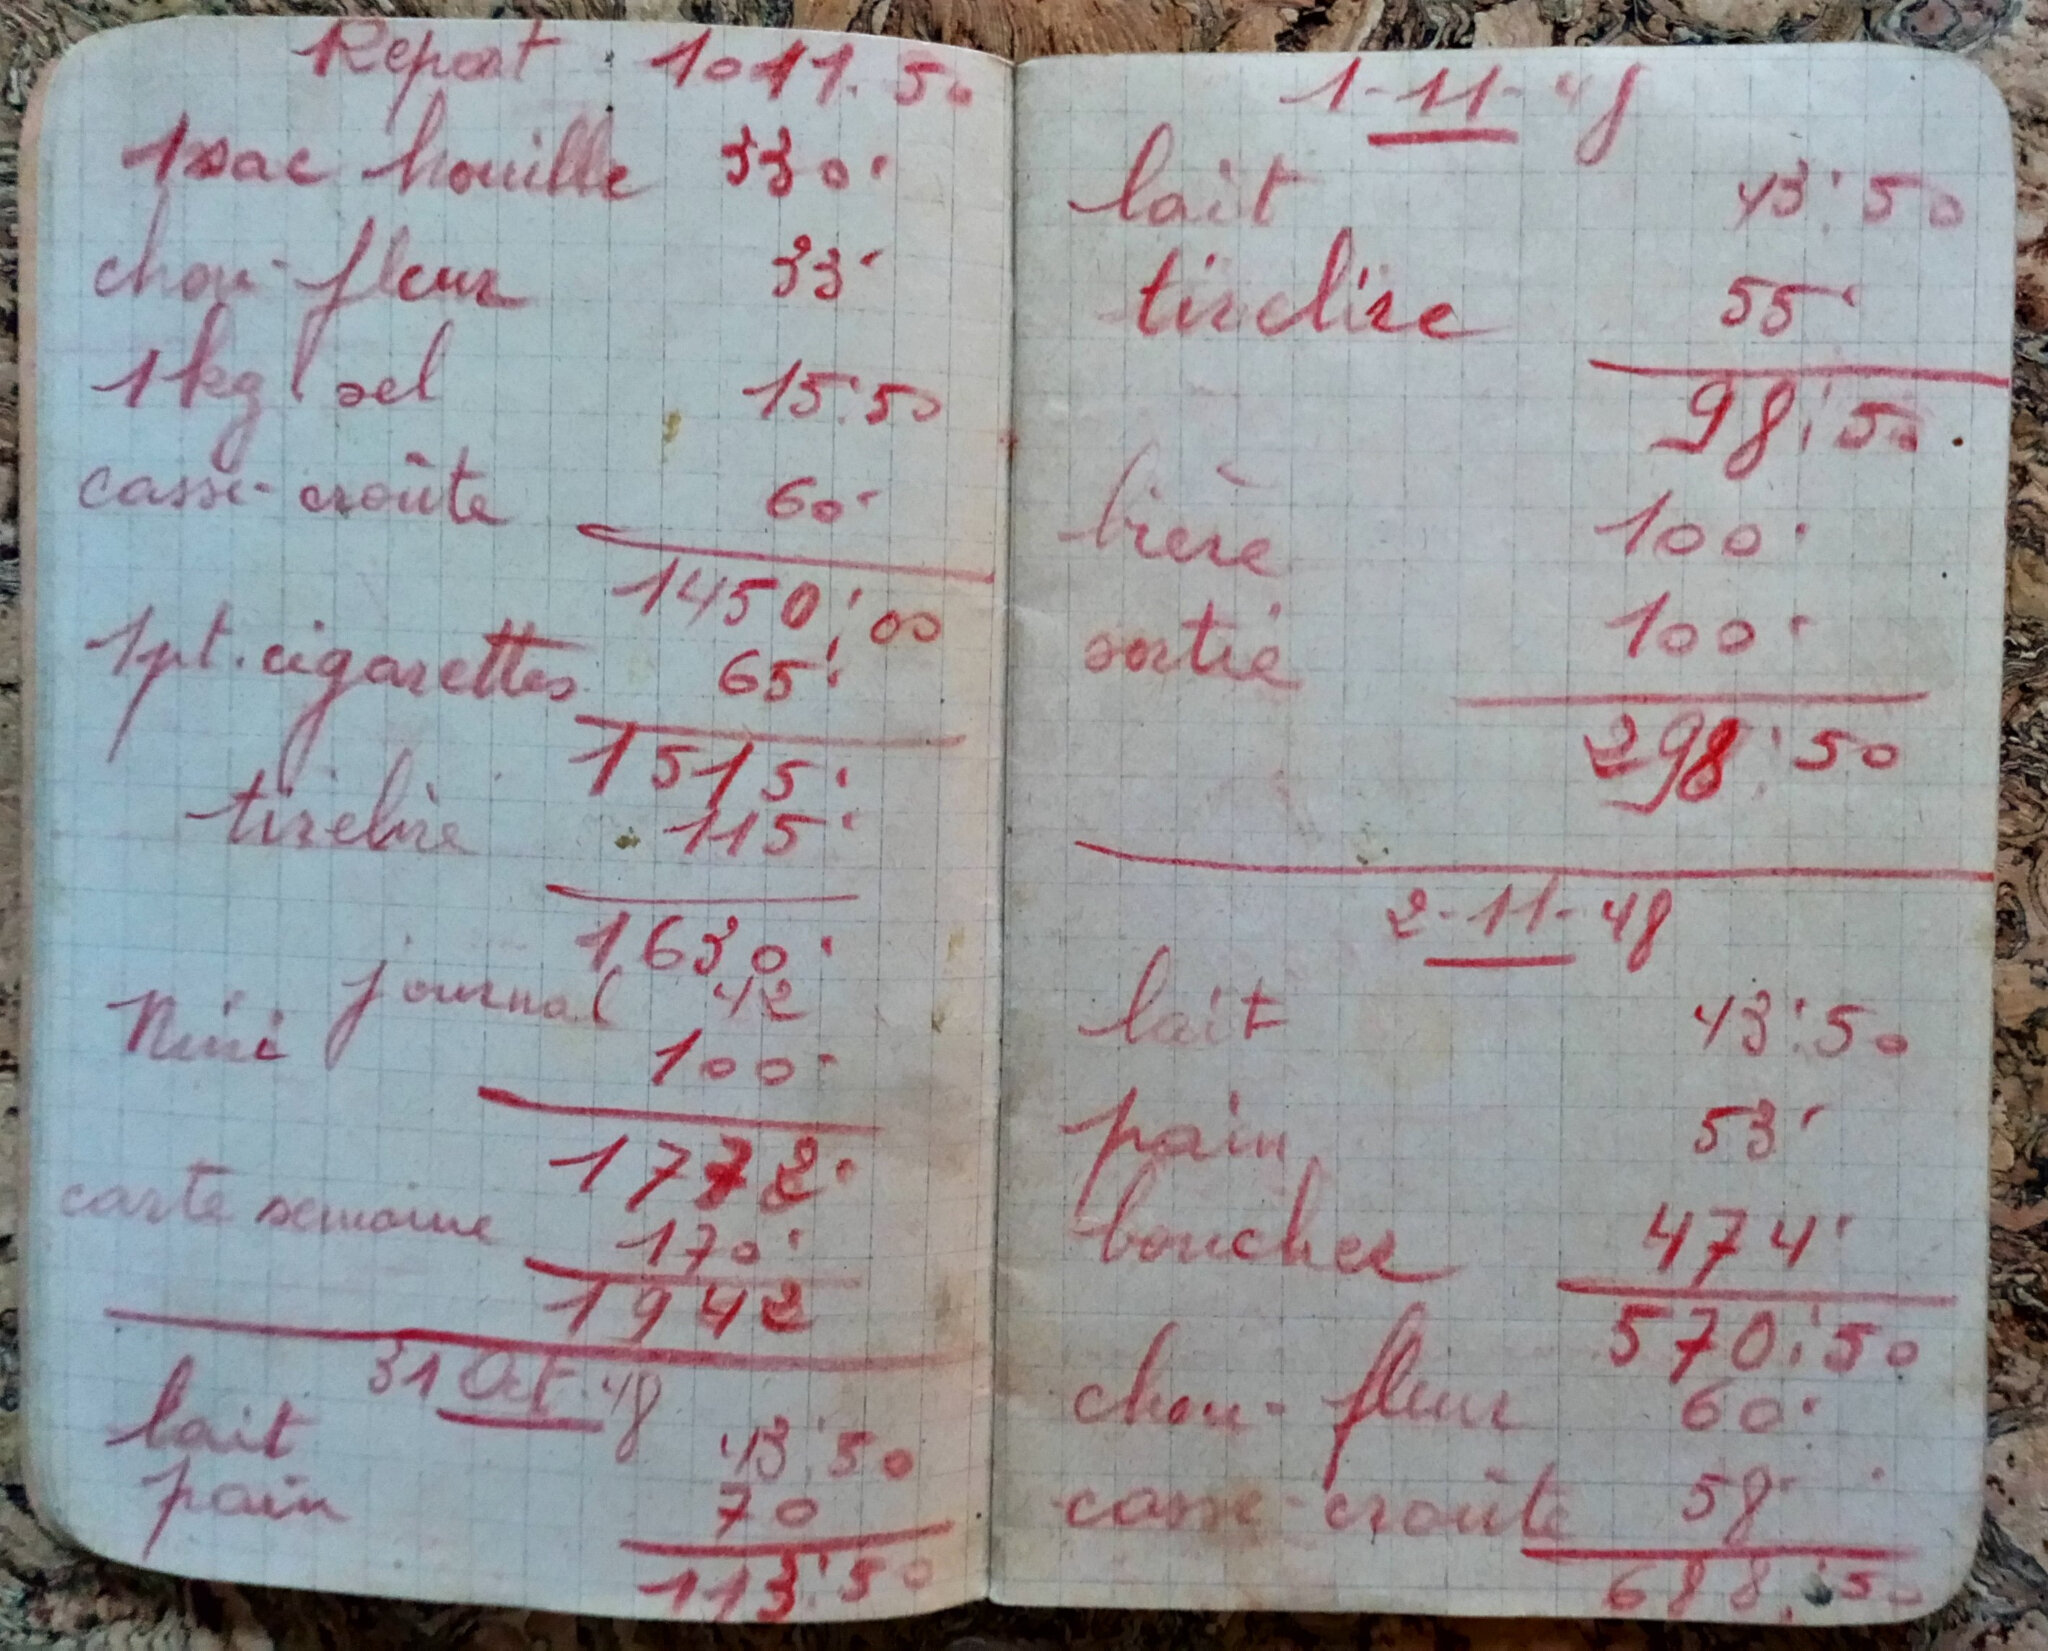 Report : 1011.50
1 sac houille 330.
chou-fleur 33.
1 kg sel 15:50
casse-croûte 60.
1450:00
1 pt. cigarettes 65:
1515:
tirelire 115:
1630:
journal 42
Nini 100.
1772.
carte semaine 170:
1942
31 Oct. 48
lait 43:50
pain 70
113:50
1-11-48
lait 43:50
tirelire 55.
98:50
bière 100.
sortie 100.
298:50
2-11-48
lait 43:50
pain 53.
boucher 474.
570:50
chou-fleur 60.
casse-croûte 58.
688:50